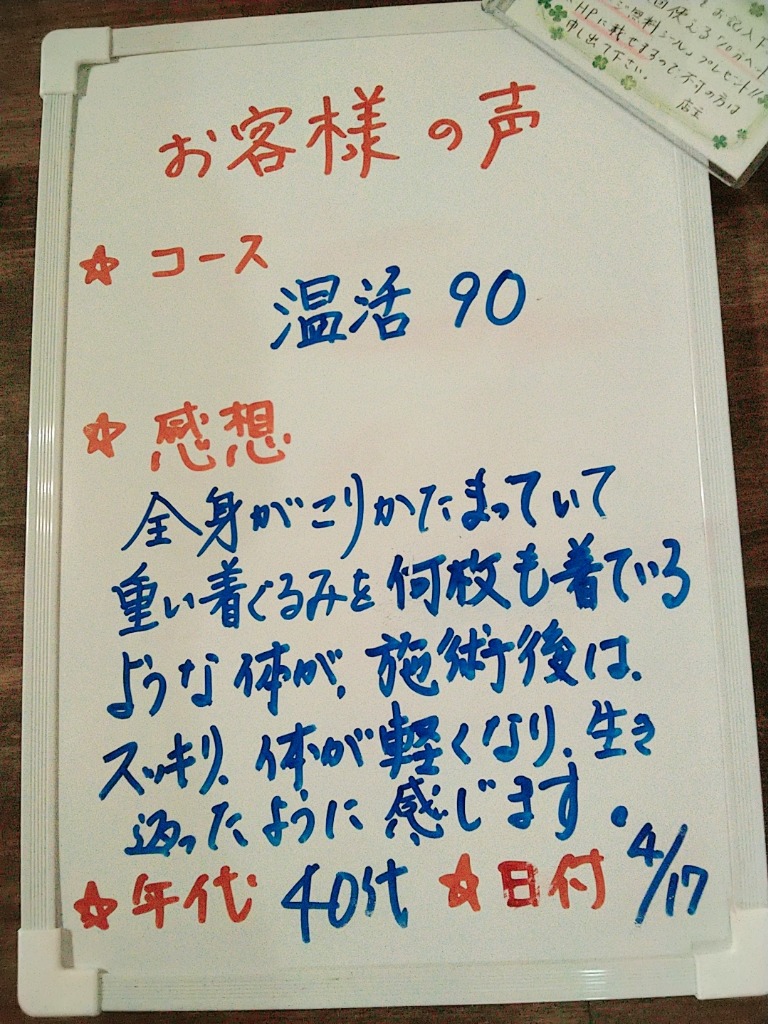 お客様の声
☆ コース
温活 90
☆ 感想
全身がこりかたまっていて
重い着ぐるみを何枚も着ている
ような体が、施術後は、
スッキリ、体が軽くなり、生き
返ったように感じます。
☆ 年代 40代 ☆ 日付 4/17
無料シール」プレゼント!!
HPに載せますので、不可の方は
申し出下さい。
店主